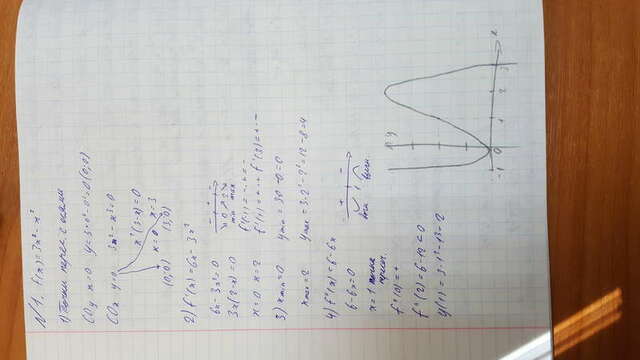 N1. f(x)=3x²-x³
1) Точки перес. с осями
COy x=0 y=3·0²-0³=0 (0;0)
COx y=0 3x²-x³=0
x²(3-x)=0
x=0 x=3
(0;0) (3;0)
2) f'(x)=6x-3x²
6x-3x²=0
- + -
3x(2-x)=0
0 2
min max
x=0 x=2
f'(-1)=-·+=-
f'(1)=+·+ f'(3)=+·-
3) xmin=0 ymin=30-0=0
xmax=2 ymax=3·2²-2³=12-8=4
4) f''(x)=6-6x
6-6x=0
+ -
1
x=1 точка
перег.
вогн. выпн.
f''(0)=+
f''(2)=6-12<0
y(1)=3·1²-1³=2
y
-1 0 1 2 3 x